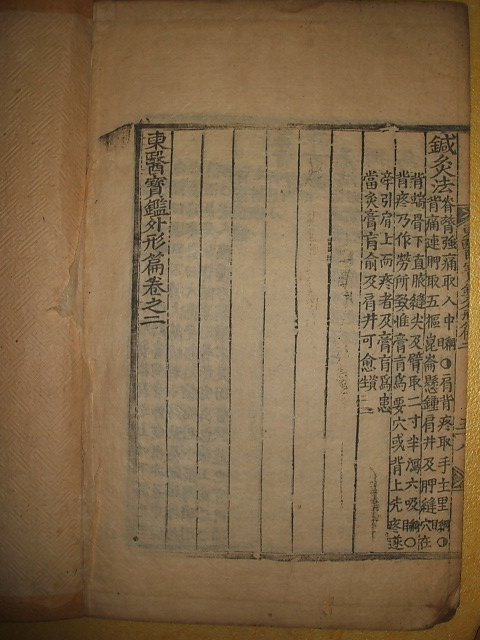 鍼灸法
脊膂強痛取人中綱目○肩背疼取手三里綱目○
背痛連胛取五樞崑崙懸鍾肩井及胛縫穴在
背端骨下直腋縫尖及臂取二寸半瀉六吸綱目○
背疼乃作勞所致惟膏肓爲要穴或背上先疼遂
牽引肩上而疼者及膏肓爲患
當灸膏肓俞及肩井可愈資生
東醫寶鑑外形篇卷之二